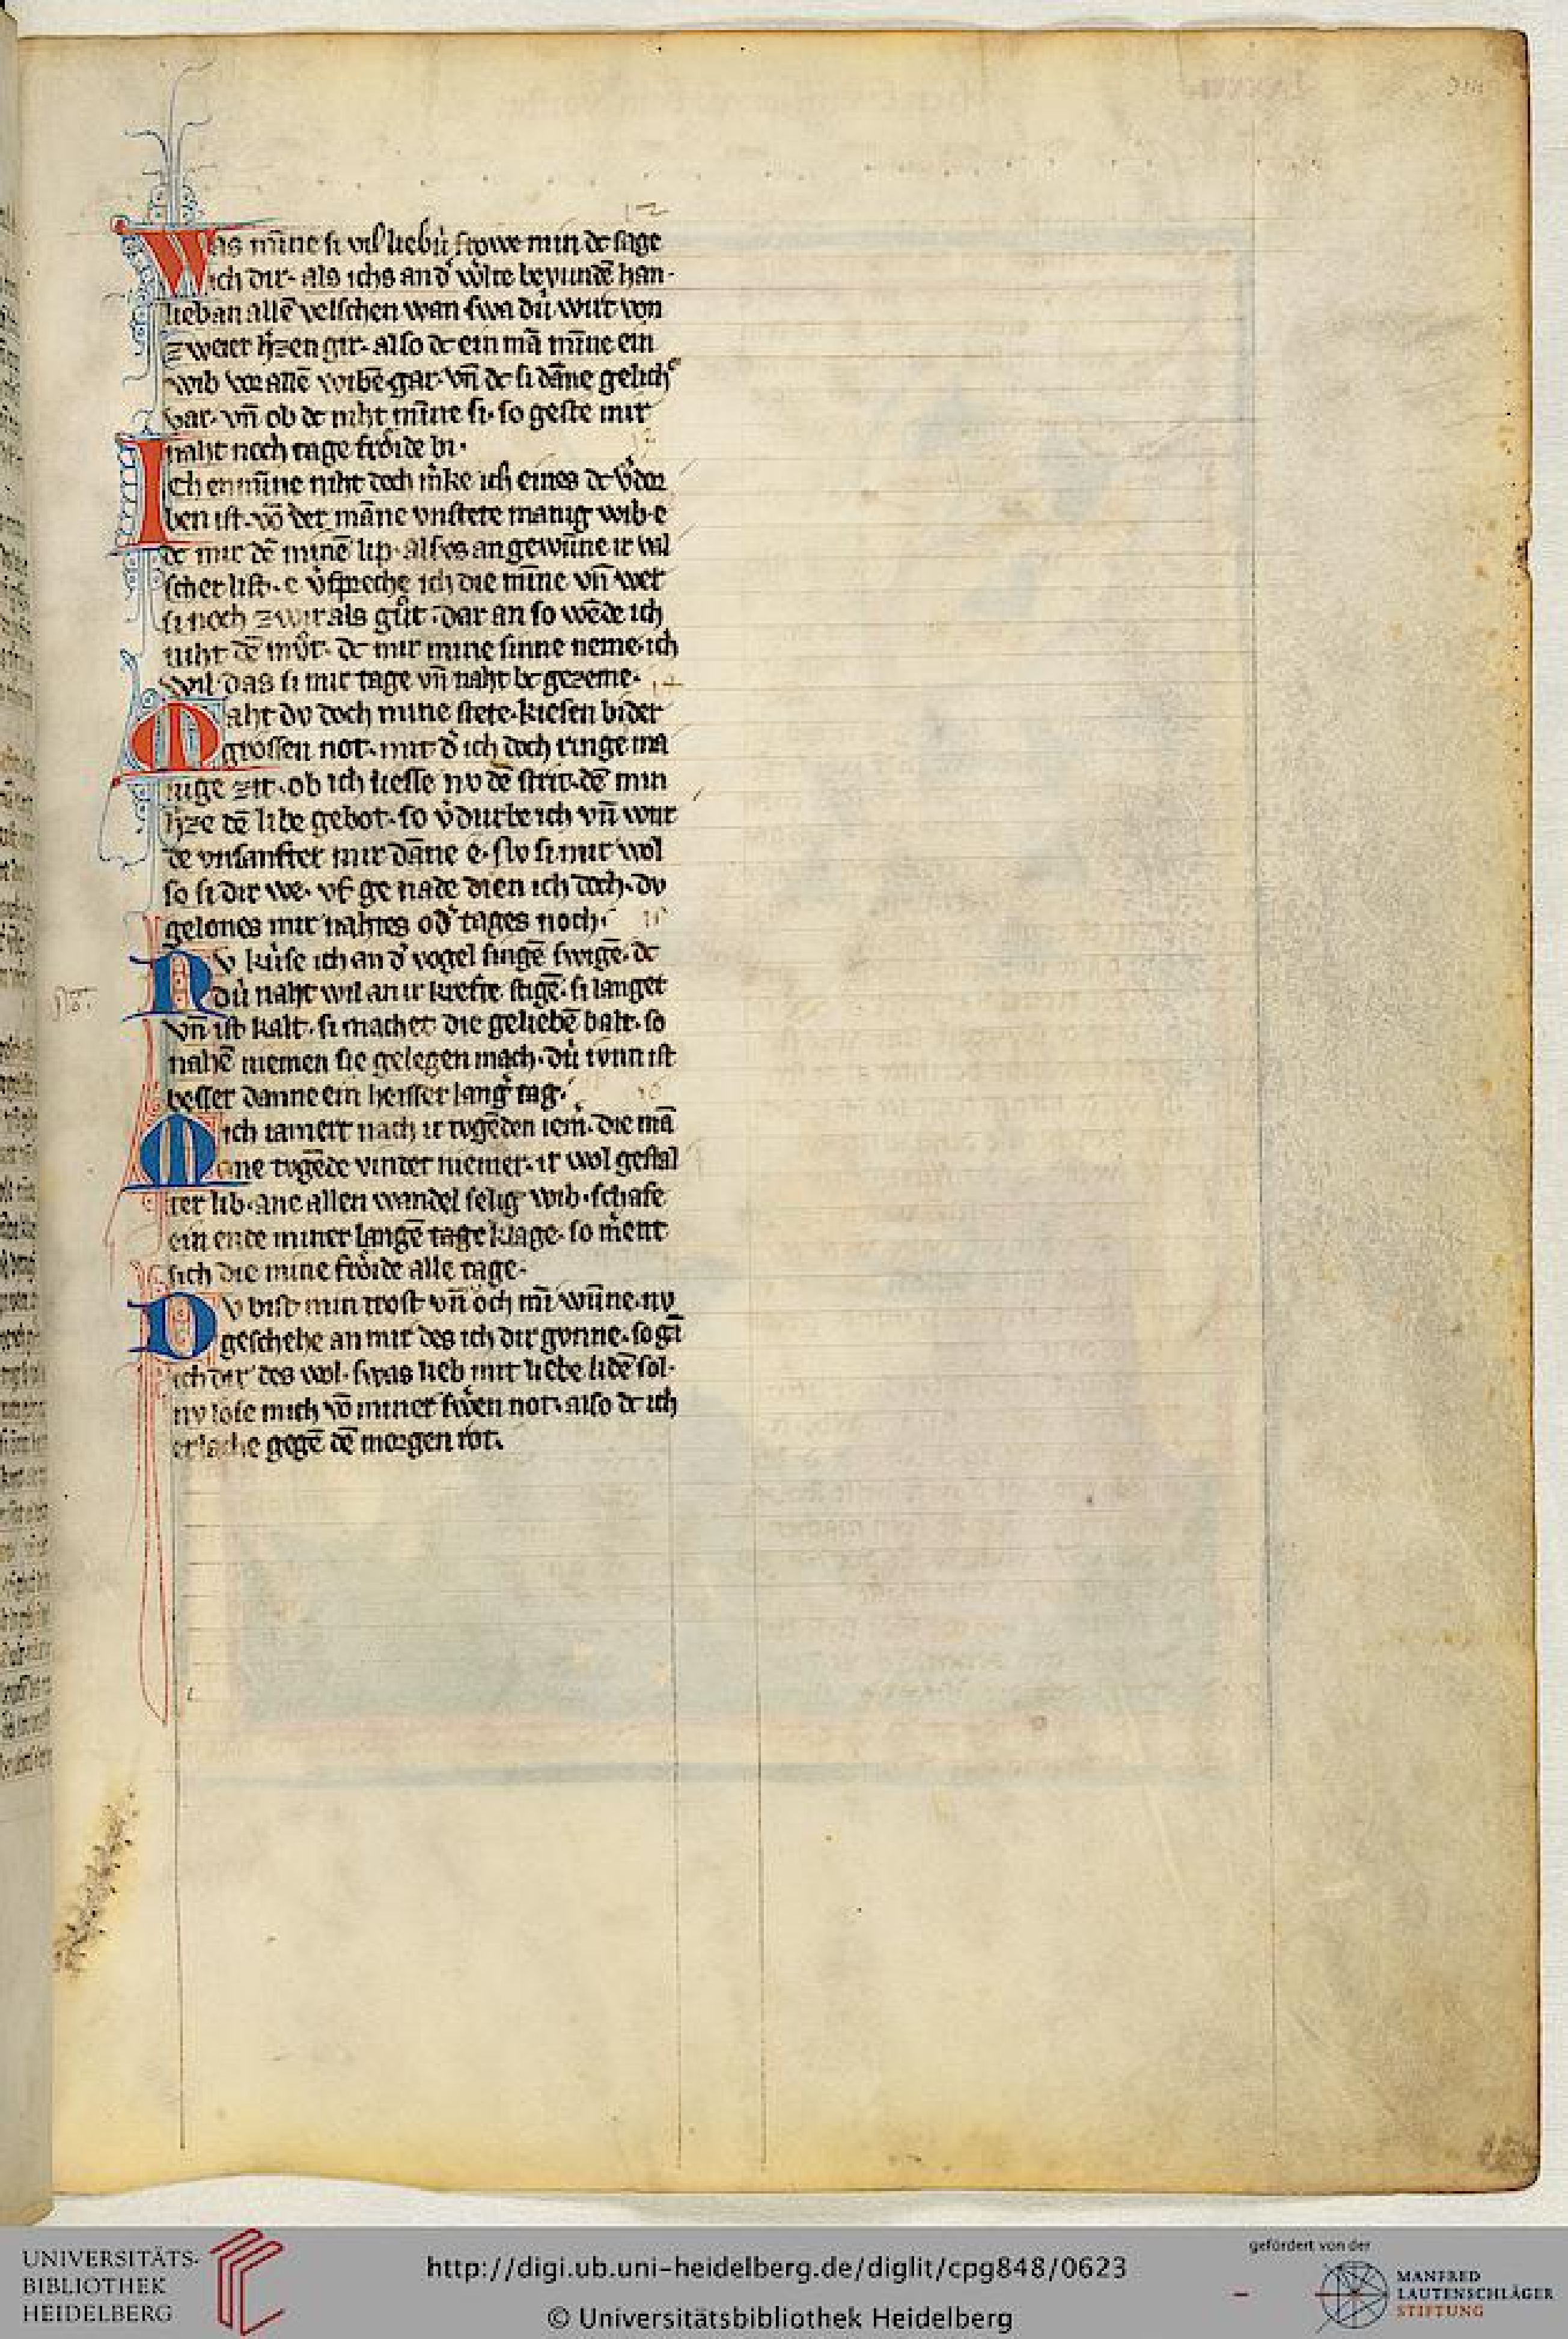 Was mīne si vil liebú frowe min dc sage
ich dir· als ichs an d̕ w̕lte bevundē han·
lieb an allē velschen wan swa dú wirt von
zweier h̕zen gir· also dc ein mā mīne ein
wib vor allē wibē gar· vn̄ dc si dāne gelich
var· vn̄ ob dc niht mīne si· so geste mir
naht noch tage froͤide bi·
Ich enmīne niht doch m̕ke ich eines dc v̕dor
ben ist· vō der māne vnstete manig wib· e
dc mir dē minē lip· alses an gewūne ir val
scher list· e v̕spreche ich die mīne vn̄ wer
si noch zwir als guͦt· dar an so wēde ich
niht dē muͦt· dc mir mine sinne neme· ich
wil das si mir tage vn̄ naht bc gezeme·
Maht dv doch mine stete· kiesen bi der
grossen not· mit d̕ ich doch ringe ma
nige zit· ob ich liesse nv dē strit· dē min
h̕ze dē libe gebot· so v̕durbe ich vn̄ wur
de vnsanfter mir dāne e· sw si mir wol
so si dir we· vf genade dien ich doch· dv
gelones mir nahtes od̕ tages noch·
Nv kúse ich an d̕ vogel singē swigē· dc
dú naht wil an ir krefte stigē· si langet
vn̄ ist kalt· si machet die geliebē balt· so
nahē niemen sie gelegen mach· dú ist
besser danne ein heisser lang̕ tag·
Mich iamert nach ir tvgēden iem̕· die mā
ane tvgēde vindet niemer· ir wol gestal
ter lib· ane allen wandel selig wib· schafe
ein ende miner langē tage klage· so m̕ent
sich die mine froͤide alle tage·
Dv bist min trost vn̄ och mī wūne· nv
geschehe an mir des ich dir gvnne· so gā
ich dir des wol· swas lieb mit liebe lidē sol·
nv lose mich vō miner sw̕en not· also dc ich
erlache gegē dē morgen rot·
UNIVERSITÄTS-
BIBLIOTHEK
HEIDELBERG
http://digi.ub.uni-heidelberg.de/diglit/cpg848/0623
© Universitätsbibliothek Heidelberg
gefördert von der
MANFRED
LAUTENSCHLÄGER
STIFTUNG